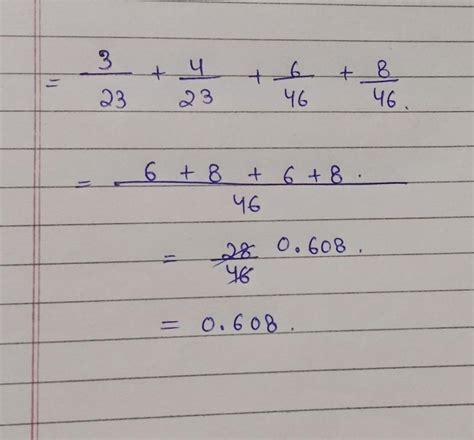 = 3/23 + 4/23 + 6/46 + 8/46.
= 6 + 8 + 6 + 8 . / 46
= 28/46 0.608.
= 0.608.